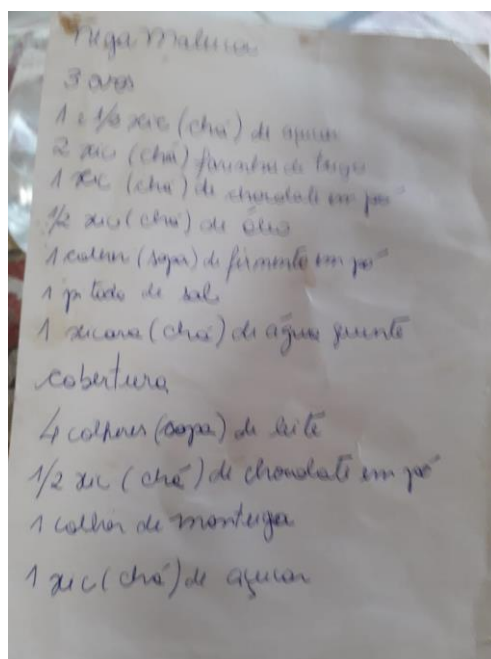 Nega Maluca
3 ovos
1 e 1/2 xic (chá) de açucar
2 xic (chá) farinha de trigo
1 xic (chá) de chocolate em pó
1/2 xic (chá) de óleo
1 colher (sopa) de fermento em pó
1 de sal
1 xicara (chá) de água quente
cobertura
4 colheres (sopa) de leite
1/2 xic (chá) de chocolate em pó
1 colher de manteiga
1 xic (chá) de açucar